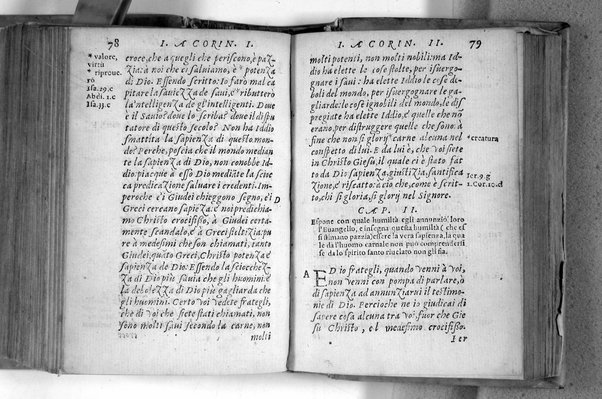 78 I. A CORIN. I.
* valore,
virtù
* riprouero
Isa. 29. c
Abdi. 1. c
Isa. 33. c
croce, che a quegli che periscono, è paz
zia: à noi che ci saluiamo, è * potenza
di Dio. Essendo scritto: Io farò mal ca
pitare la sauiezza de saui, & * ributterò
la'ntelligenza de gl'intelligenti. Doue
è il Sauio? doue lo scriba? doue il dispu
tatore di questo secolo? Non ha Iddio
smattita la sapienza di questo mon-
do? Perche, poscia che il mondo median
te la sapienza di Dio, non conobbe Id
dio: piacque à esso Dio mediãte la scioc
ca predicazione saluare i credenti. Im-
peroche e i Giudei chieggono segno, e i
D
Greci cercano sapiẽza, e noi predichia-
mo Christo crocifisso, à Giudei certa-
mente scandalo, e à Greci stoltizia: pu
re à medesimi che son chiamati, tanto
Giudei, quãto Greci, Christo potenza e
sapienza di Dio: Essendo la sciochez-
za di Dio più sauia che gli huomini e
la debolezza di Dio più gagliarda che
gli huomini. Certo voi vedete frategli,
che di voi che siete stati chiamati, non
sono molti saui secondo la carne, non
molti
I. A CORIN. II. 79
molti potenti, non molti nobili: ma Id
dio ha elette le cose stolte, per isuergo-
gnare i saui: ha elette Iddio le cose de-
boli del mondo, per isuergognare le ga-
gliarde: le cose ignobili del mondo, le di
spregiate ha elette Iddio, e quelle che no
erano, per distruggere quelle che sono: à
fine che non si glorij * carne alcuna nel
* creatura
conspetto di lui. E da lui è, che voi sete
in Christo Giesù, il quale ci è stato fat
to da Dio sapienza, giustizia, santifica
Ier. 9. g
zione, e riscatto: acio che, come è scrit-
1. Cor. 10. d
to, chi si gloria, si glorij nel Signore.
CAP. II.
Espone con quale humiltà egli annunziò loro
l'Euangelio, e insegna questa humiltà (che es
si stimano pazzia) essere la vera sapienza, la qua
le da l'huomo carnale non può comprendersi
se da lo spirito santo riuelato non gli sia.
A
ED io frategli, quando venni à voi,
non venni con pompa di parlare, ò
di sapienza ad annunziarui il testimo-
nie di Dio. Percioche ne io giudicai di
sapere cosa alcuna tra voi, fuor che Gie
sù Christo, e'l medesimo crocifisso.
Ier